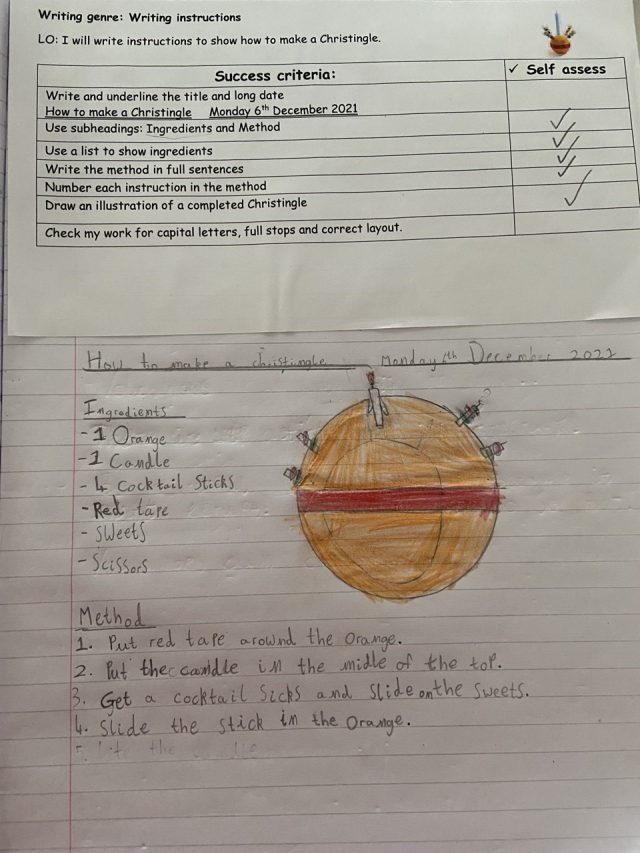 Writing genre: Writing instructions
LO: I will write instructions to show how to make a Christingle.
Success criteria: ✓ Self assess
Write and underline the title and long date
How to make a Christingle Monday 6th December 2021
Use subheadings: Ingredients and Method
Use a list to show ingredients
Write the method in full sentences
Number each instruction in the method
Draw an illustration of a completed Christingle
Check my work for capital letters, full stops and correct layout.
How to make a christingle Monday 6th December 2021
Ingredients
- 1 Orange
- 1 Candle
- 4 Cocktail Sticks
- Red tape
- Sweets
- Scissors
Method
1. Put red tape around the Orange.
2. Put the candle in the midle of the top.
3. Get a cocktail Sicks and Slide on the Sweets.
4. Slide the stick in the Orange.
5. the